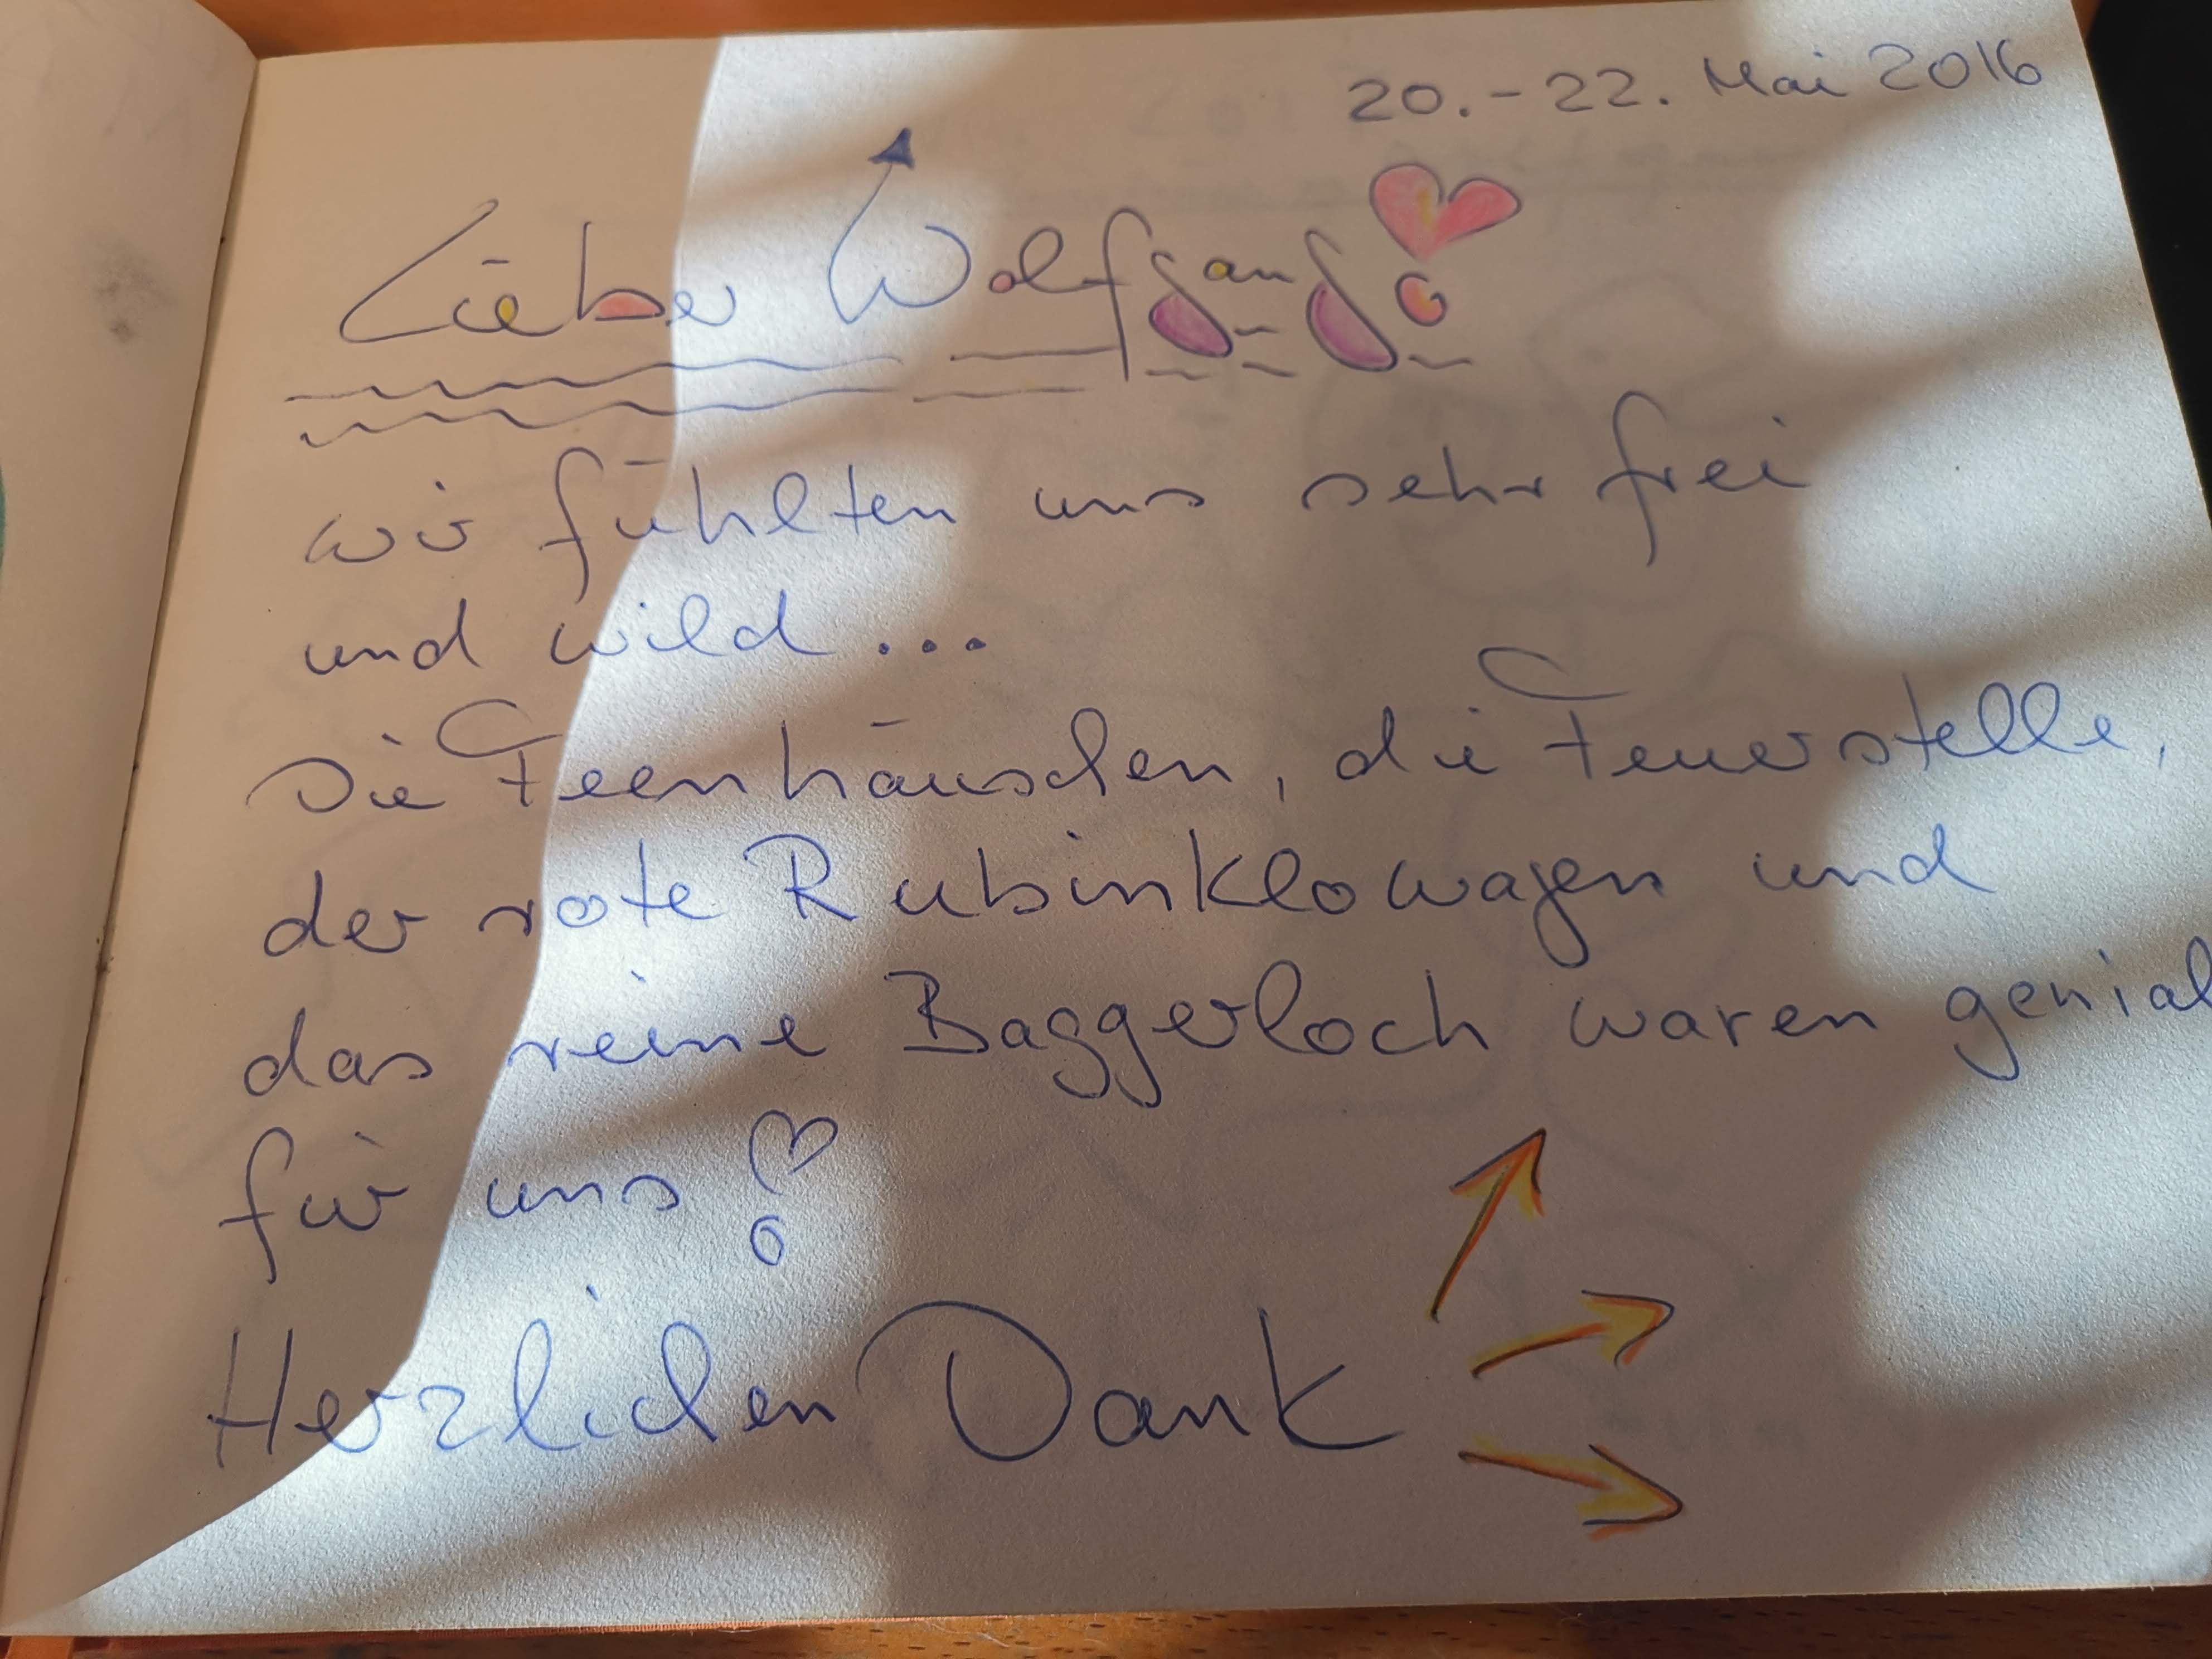 20. - 22. Mai 2016
Lieber Wolfgang!
wir fühlten uns sehr frei
und wild...
Die Feenhäuschen, die Feuerstelle,
der rote Rubinklowagen und
das reine Baggerloch waren genial
für uns!
Herzlichen Dank